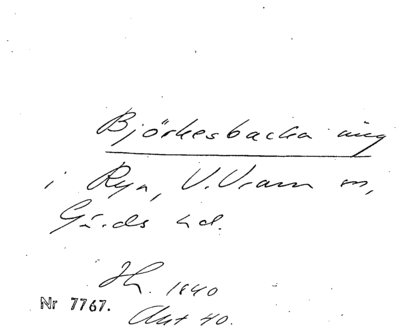 Björkesbacka äng
i Rya, V. Vram sn,
Gärds hd.
1840
Nr 7767.
Akt 40.